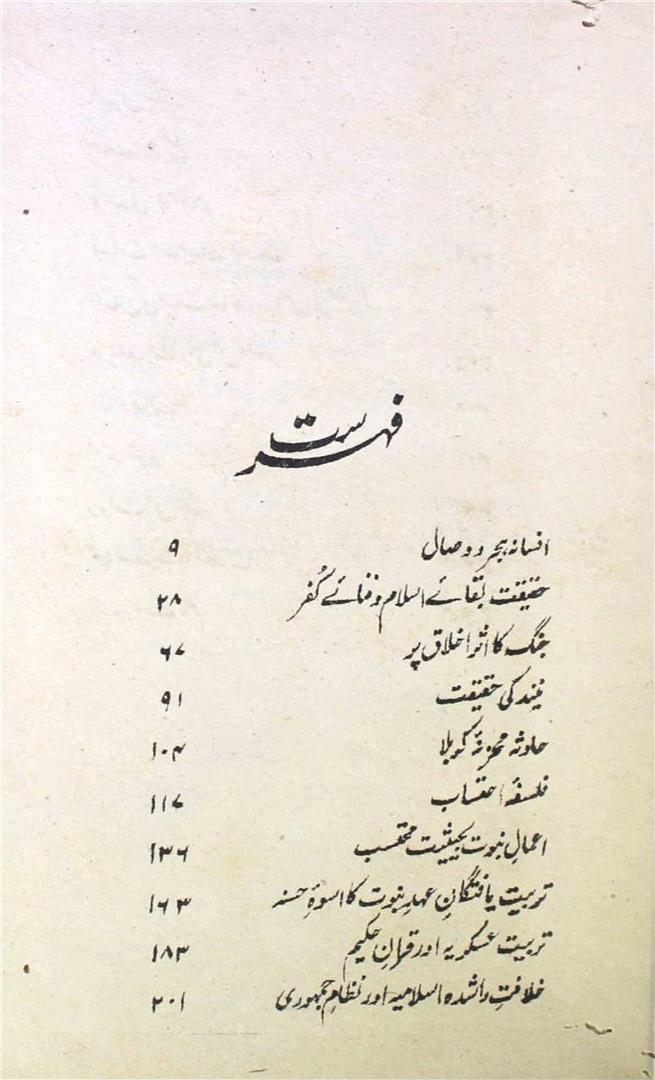 فہرست
افسانہ ہجر و وصال ۹
حقیقت بقائے اسلام و فنائے کُفر ۲۸
جنگ کا اثر اخلاق پر ۶۷
نیند کی حقیقت ۹۱
حادثہ محزنۂ کربلا ۱۰۴
فلسفۂ احتساب ۱۱۷
اعمالِ نبوت بحیثیت محتسب ۱۳۶
تربیت یافتگانِ عہدِ نبوت کا اسوۂ حسنہ ۱۶۳
تربیت عسکریہ اور قرآن حکیم ۱۸۳
خلافتِ راشدہ اسلامیہ اور نظامِ جمہوری ۲۰۱